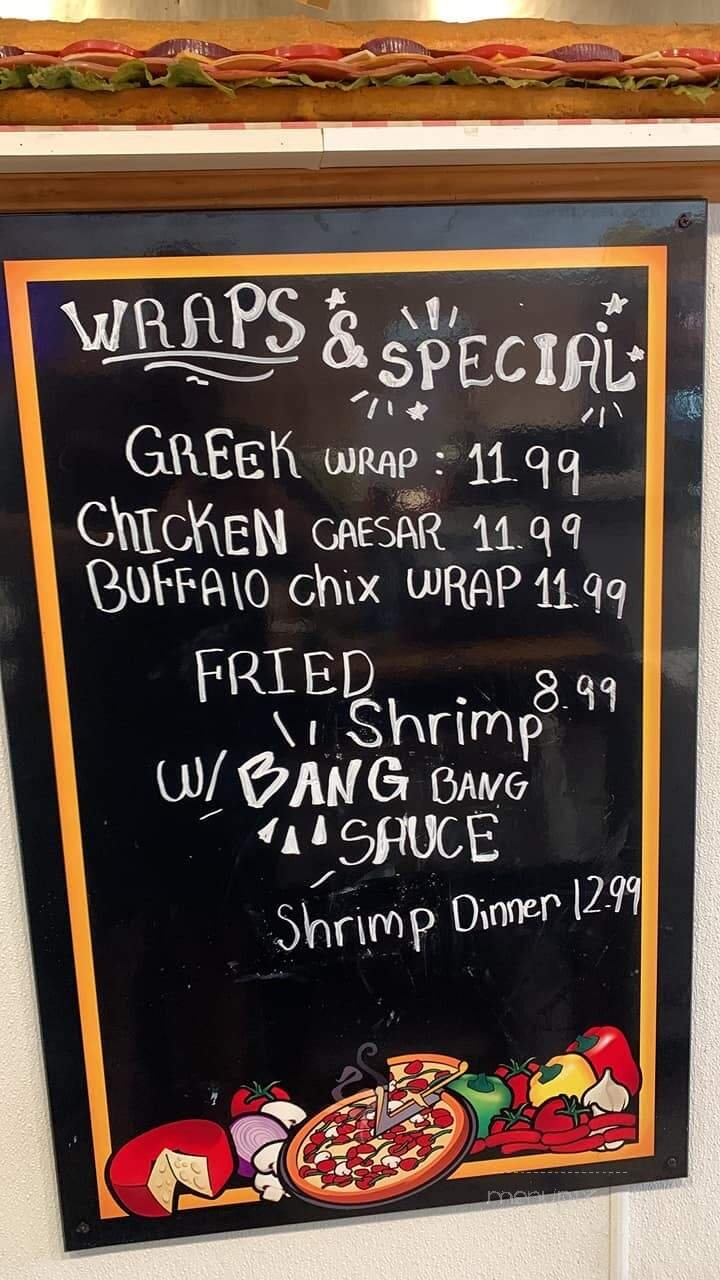 WRAPS & SPECIAL
GREEK WRAP : 11.99
CHICKEN CAESAR 11.99
BUFFALO Chix WRAP 11.99
FRIED
8.99
Shrimp
W/ BANG BANG
SAUCE
Shrimp Dinner 12.99